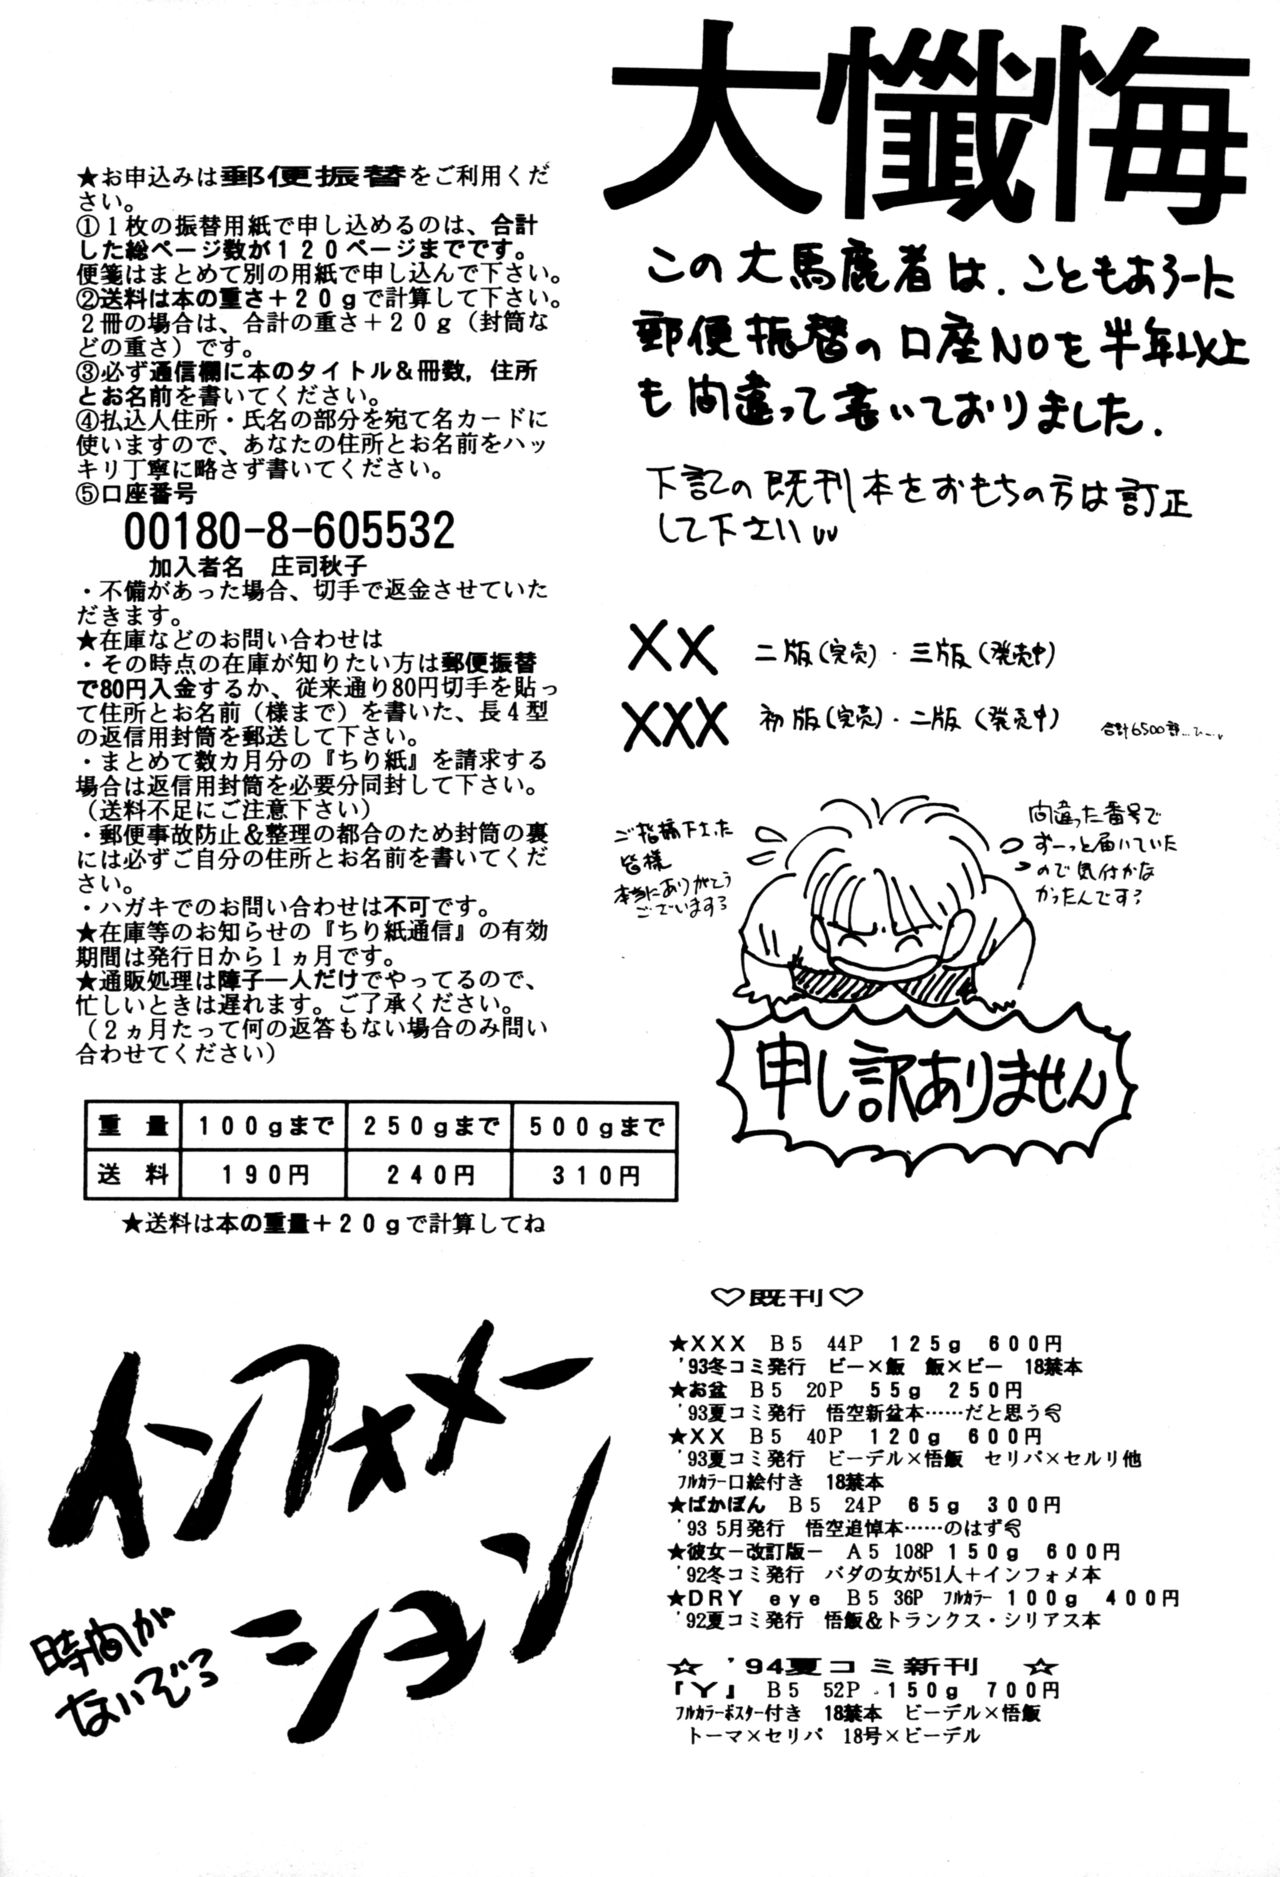 大懺悔
この大馬鹿者は、こともあろーに
郵便振替の口座NOを半年以上
も間違って書いておりました.
下記の既刊本をおもちの方は訂正
して下さい
XX 二版(完売)・三版(発売中)
XXX 初版(完売)・二版(発売中)
合計6500部…
ご指摘下さった
皆様
本当にありがとう
ございます
間違った番号で
ずーっと届いていた
ので気付かな
かったんです
申し訳ありません
★お申込みは郵便振替をご利用くだ
さい。
①1枚の振替用紙で申し込めるのは、合計
した総ページ数が120ページまでです。
便箋はまとめて別の用紙で申し込んで下さい。
②送料は本の重さ+20gで計算して下さい。
2冊の場合は、合計の重さ+20g(封筒な
どの重さ)です。
③必ず通信欄に本のタイトル&冊数,住所
とお名前を書いてください。
④払込人住所・氏名の部分を宛て名カードに
使いますので、あなたの住所とお名前をハッ
キリ丁寧に略さず書いてください。
⑤口座番号
00180-8-605532
加入者名 庄司秋子
・不備があった場合、切手で返金させていた
だきます。
★在庫などのお問い合わせは
・その時点の在庫が知りたい方は郵便振替
で80円入金するか、従来通り80円切手を貼っ
て住所とお名前(様まで)を書いた、長4型
の返信用封筒を郵送して下さい。
・まとめて数カ月分の『ちり紙』を請求する
場合は返信用封筒を必要分同封して下さい。
(送料不足にご注意下さい)
・郵便事故防止&整理の都合のため封筒の裏
には必ずご自分の住所とお名前を書いてくだ
さい。
・ハガキでのお問い合わせは不可です。
★在庫等のお知らせの『ちり紙通信』の有効
期間は発行日から1ヵ月です。
★通販処理は障子一人だけでやってるので、
忙しいときは遅れます。ご了承ください。
(2ヵ月たって何の返答もない場合のみ問い
合わせてください)
重量 100gまで 250gまで 500gまで
送料 190円 240円 310円
★送料は本の重量+20gで計算してね
インフォメー
ション
時間が
ないぞ
♡既刊♡
★XXX B5 44P 125g 600円
'93冬コミ発行 ビー×飯 飯×ビー 18禁本
★お盆 B5 20P 55g 250円
'93夏コミ発行 悟空新盆本……だと思う
★XX B5 40P 120g 600円
'93夏コミ発行 ビーデル×悟飯 セリパ×セルリ他
フルカラー口絵付き 18禁本
★ばかぼん B5 24P 65g 300円
'93 5月発行 悟空追悼本……のはず
★彼女-改訂版- A5 108P 150g 600円
'92冬コミ発行 バダの女が51人+インフォメ本
★DRY eye B5 36P フルカラー 100g 400円
'92夏コミ発行 悟飯&トランクス・シリアス本
☆ '94夏コミ新刊 ☆
『Y』 B5 52P 150g 700円
フルカラーポスター付き 18禁本 ビーデル×悟飯
トーマ×セリパ 18号×ビーデル